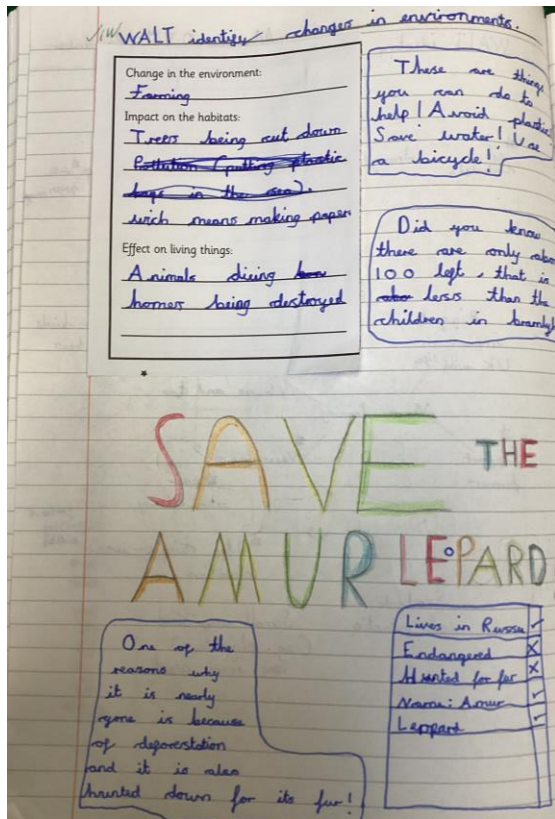 WALT identify changes in environments.
Change in the environment:
Farming
Impact on the habitats:
Trees being cut down
Pollution (putting plastic
bags in the sea).
wich means making paper
Effect on living things:
Animals dieing
homes being destroyed
These are things
you can do to
help! Avoid plastic
Save water! Use
a bicycle!
Did you know
there are only abo
100 left, that is
less than the
children in
SAVE THE
AMUR LEOPARD
One of the
reasons why
it is nearly
gone is because
of deforestation
and it is also
hunted down for its fur!
Lives in Russia
Endangered
Hunted for fur
Name: Amur
Leppard